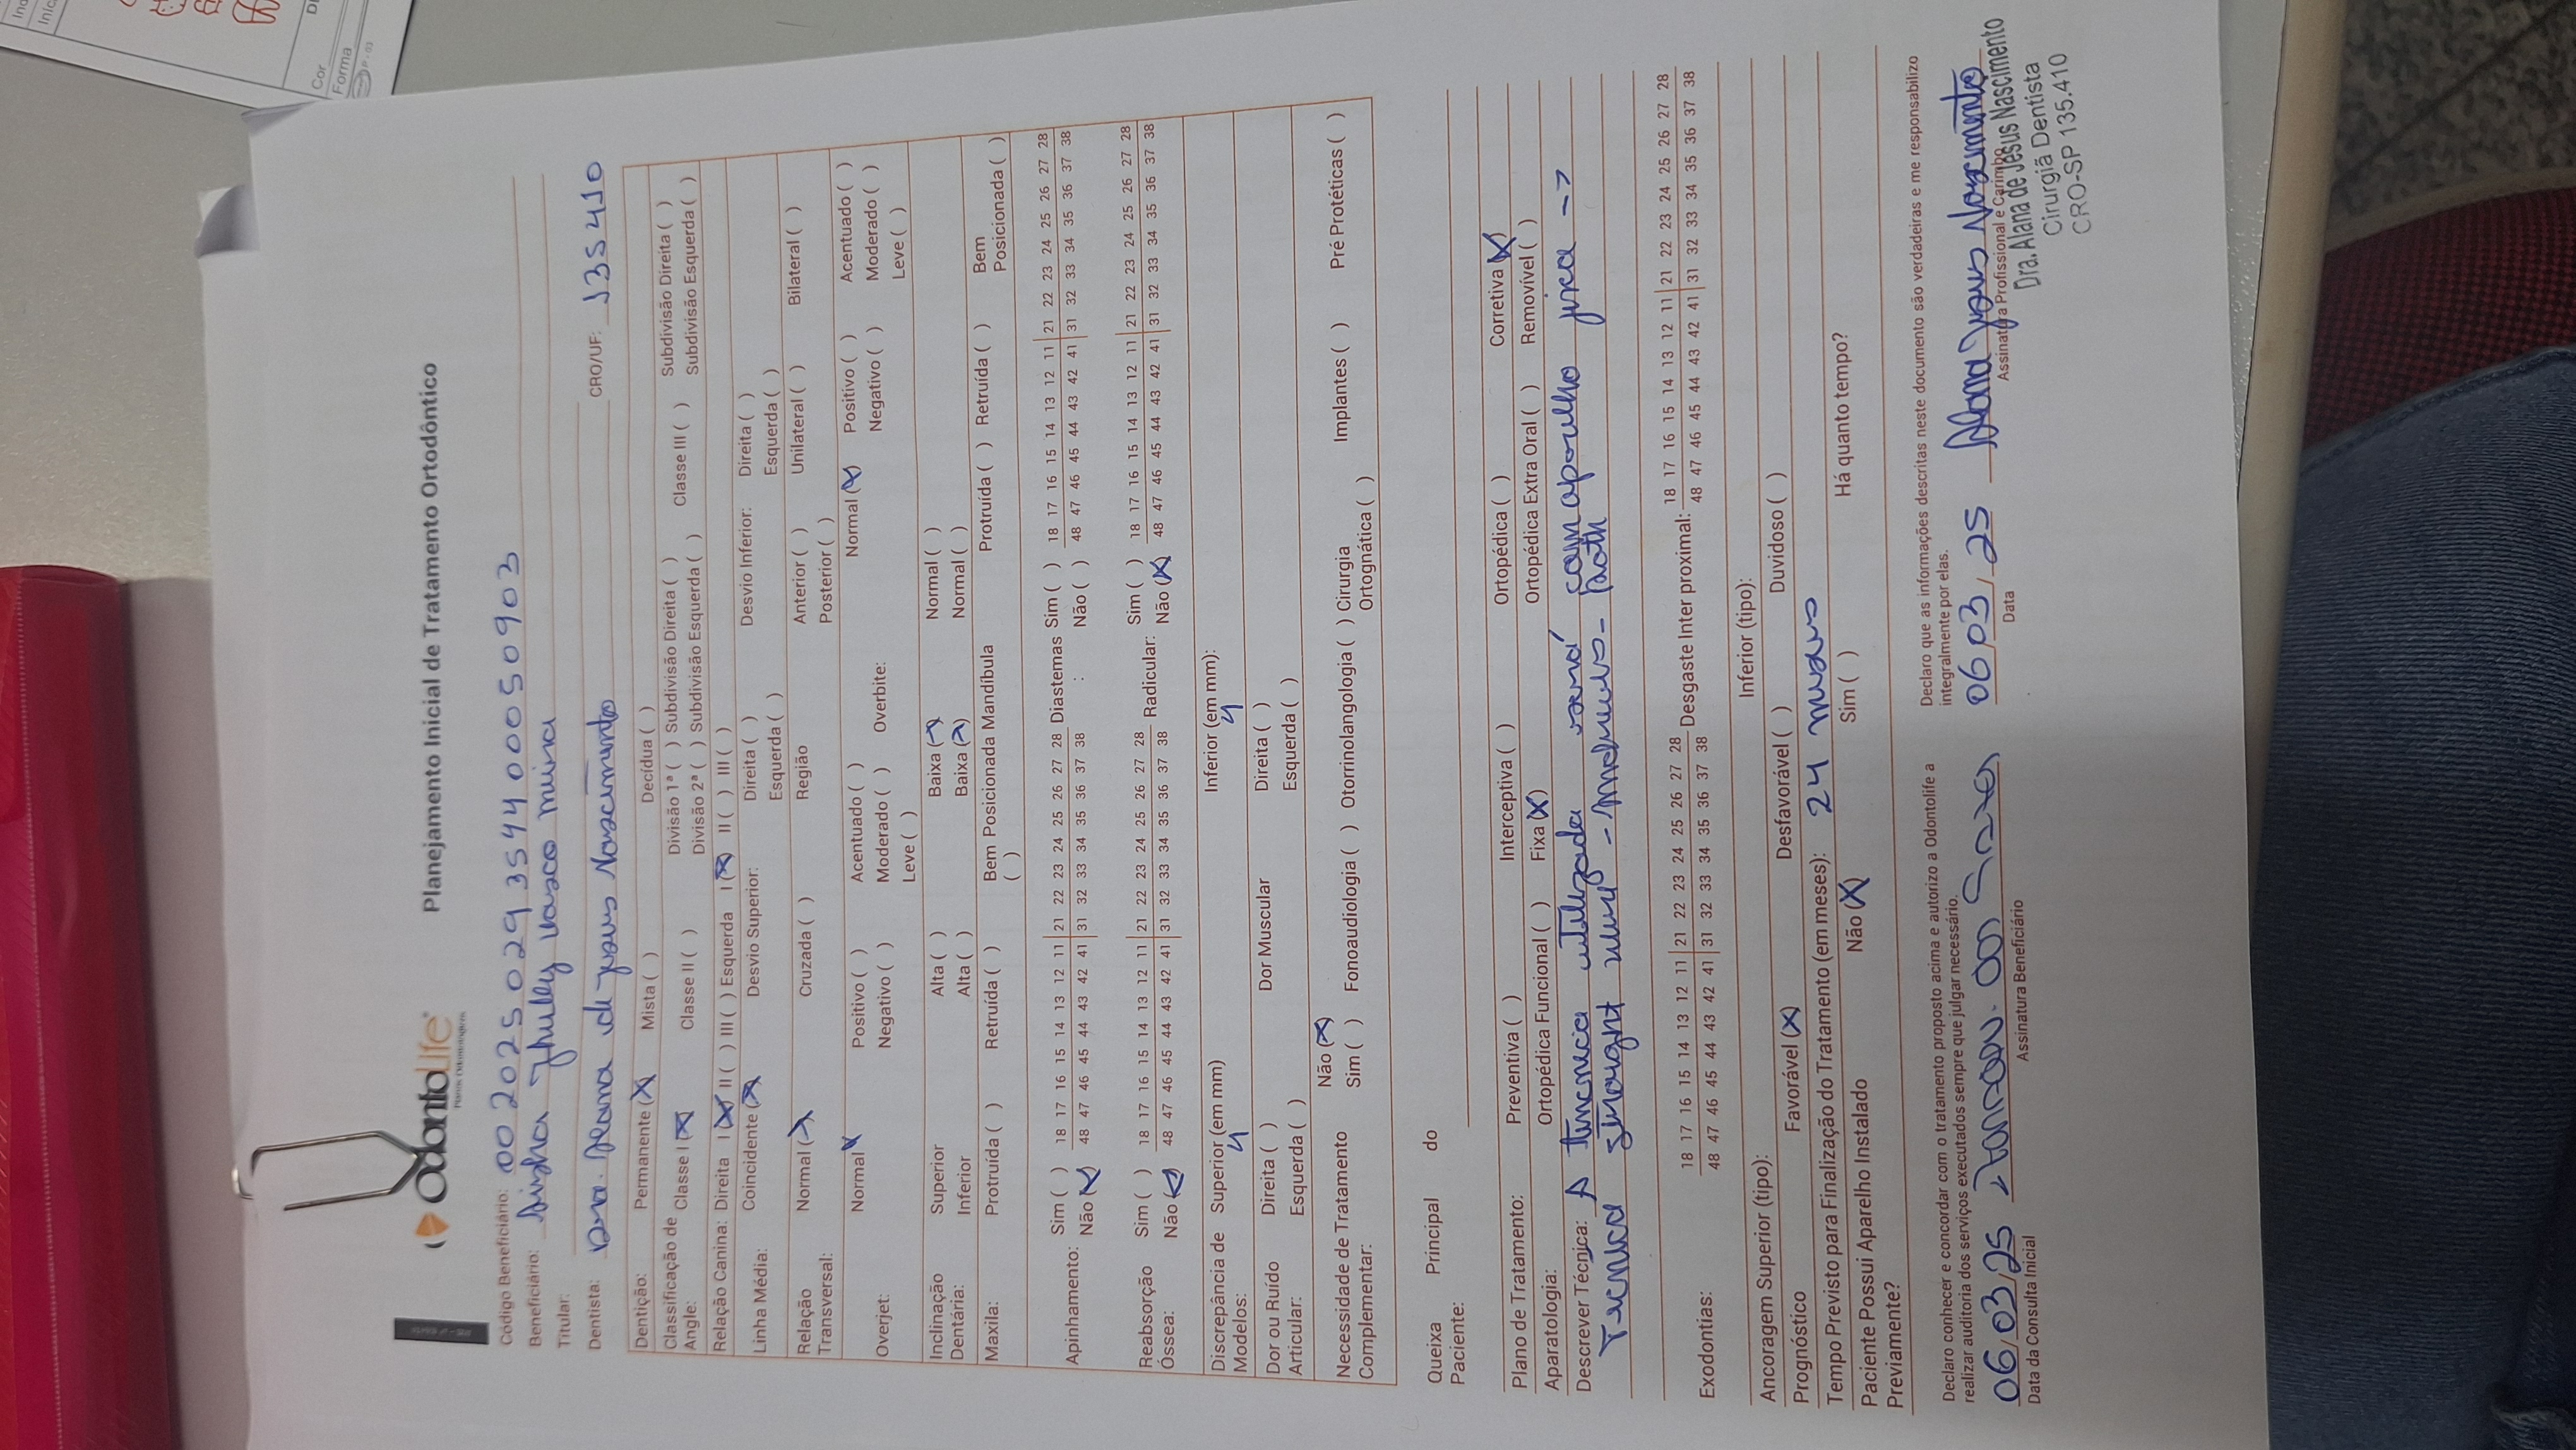 OdontoLife
Planejamento Inicial de Tratamento Ortodôntico
Código Beneficiário: 002025029354400050903
Beneficiário:
Titular:
Dentista: Dra. Alana de Jesus Nascimento CRO/UF: 135410
Dentição: Permanente (X) Mista ( ) Decídua ( )
Classificação de Angle: Classe I (X) Classe II ( ) Divisão 1ª ( ) Subdivisão Direita ( ) Classe III ( ) Subdivisão Direita ( )
Divisão 2ª ( ) Subdivisão Esquerda ( ) Subdivisão Esquerda ( )
Relação Canina: Direita I (X) II ( ) III ( ) Esquerda I (X) II ( ) III ( )
Linha Média: Coincidente (X) Desvio Superior: Direita ( ) Desvio Inferior: Direita ( )
Esquerda ( ) Esquerda ( )
Relação Transversal: Normal (X) Cruzada ( ) Região Anterior ( ) Unilateral ( ) Bilateral ( )
Posterior ( )
Overjet: Normal X Positivo ( ) Acentuado ( ) Overbite: Normal (X) Positivo ( ) Acentuado ( )
Negativo ( ) Moderado ( ) Negativo ( ) Moderado ( )
Leve ( ) Leve ( )
Inclinação Dentária: Superior Alta ( ) Baixa (X) Normal ( )
Inferior Alta ( ) Baixa (X) Normal ( )
Maxila: Protruída ( ) Retruída ( ) Bem Posicionada ( ) Mandíbula Protruída ( ) Retruída ( ) Bem Posicionada ( )
Apinhamento: Sim ( ) 18 17 16 15 14 13 12 11 21 22 23 24 25 26 27 28 Diastemas : Sim ( ) 18 17 16 15 14 13 12 11 21 22 23 24 25 26 27 28
Não (X) 48 47 46 45 44 43 42 41 31 32 33 34 35 36 37 38 Não ( ) 48 47 46 45 44 43 42 41 31 32 33 34 35 36 37 38
Reabsorção Óssea: Sim ( ) 18 17 16 15 14 13 12 11 21 22 23 24 25 26 27 28 Radicular: Sim ( ) 18 17 16 15 14 13 12 11 21 22 23 24 25 26 27 28
Não (X) 48 47 46 45 44 43 42 41 31 32 33 34 35 36 37 38 Não (X) 48 47 46 45 44 43 42 41 31 32 33 34 35 36 37 38
Discrepância de Modelos: Superior (em mm) 4 Inferior (em mm): 4
Dor ou Ruído Articular: Direita ( ) Dor Muscular Direita ( )
Esquerda ( ) Esquerda ( )
Necessidade de Tratamento Complementar: Não (X)
Sim ( ) Fonoaudiologia ( ) Otorrinolangologia ( ) Cirurgia Ortognática ( ) Implantes ( ) Pré Protéticas ( )
Queixa Principal do Paciente:
Plano de Tratamento: Preventiva ( ) Interceptiva ( ) Ortopédica ( ) Corretiva (X)
Aparatologia: Ortopédica Funcional ( ) Fixa (X) Ortopédica Extra Oral ( ) Removível ( )
Descrever Técnica: A técnica utilizada será com aparelho fixa ->
Tecnica straight - Roth
Exodontias: 18 17 16 15 14 13 12 11 21 22 23 24 25 26 27 28 Desgaste Inter proximal: 18 17 16 15 14 13 12 11 21 22 23 24 25 26 27 28
48 47 46 45 44 43 42 41 31 32 33 34 35 36 37 38 48 47 46 45 44 43 42 41 31 32 33 34 35 36 37 38
Ancoragem Superior (tipo): Inferior (tipo):
Prognóstico Favorável (X) Desfavorável ( ) Duvidoso ( )
Tempo Previsto para Finalização do Tratamento (em meses): 24 meses
Paciente Possui Aparelho Instalado Previamente? Não (X) Sim ( ) Há quanto tempo?
Declaro conhecer e concordar com o tratamento proposto acima e autorizo a Odontolife a
realizar auditoria dos serviços executados sempre que julgar necessário.
Declaro que as informações descritas neste documento são verdadeiras e me responsabilizo
integralmente por elas.
06/03/25
Data da Consulta Inicial Assinatura Beneficiário
06/03/25 Alana Jesus Nascimento
Data Assinatura Profissional e Carimbo
Dra. Alana de Jesus Nascimento
Cirurgiã Dentista
CRO-SP 135.410
Cor
Forma